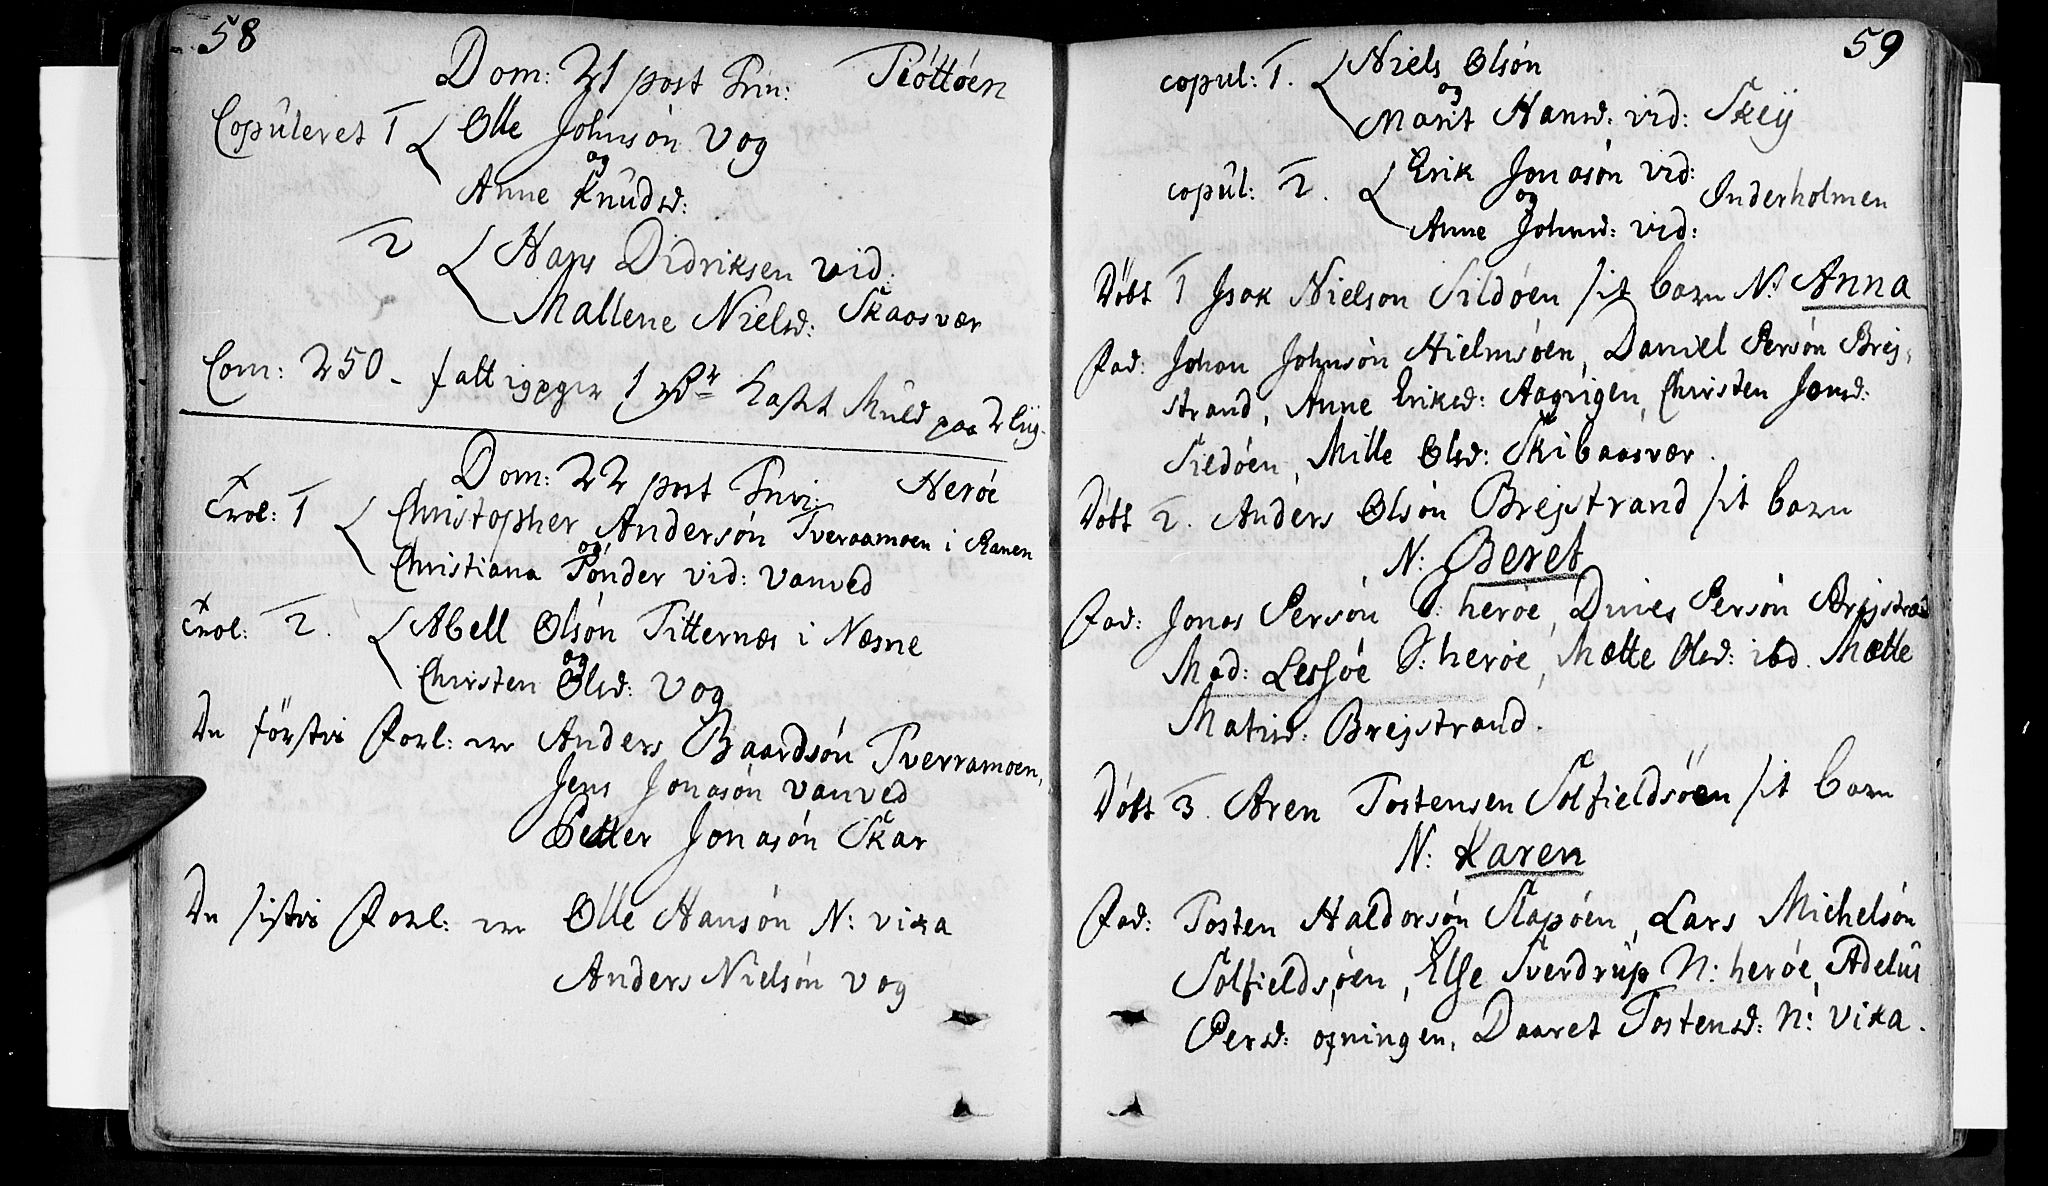 58
Dom: 21 post Trin: Tióttóen
Copuleret 1 Olle Johnsón Vog
og
Anne Knudsd:
2 Hans Didriksen vid:
Mallene Nielsd: Skaosvær
Com: 250 -
Dom: 22 post Trini: Herøe
Trol: 1 Christopher Andersón Tveraamoen i Ranen
og
Christiana Pónder vid: Vanved
Trol: 2. Abell Olsón Titternæs i Næsne
og
Christen Olsd: Vog
De förste Forl: er Anders Baardsón Tverramoen,
Jens Jonasón Vanved
Petter Jonasón Skar
De siste Forl: er Olle Hansón N: vika
Anders Nielsón Vog
59
copul: 1. Niels Olsón
og
Marit Hansd: vid: Skeij
copul: 2. Erik Jonasón vid: Inderholmen
og
Anne Johnsd: vid:
Döbt 1 Isak Nielson Sildóen sit barn N: Anna
Fad: Johan Johnsón Hielmsóen, Daniel Persón Brej-
strand, Anne Eriksd: Aagvigen, Christen Jonsd:
Sildóen, Mille Olsd: Skibaasvær.
Döbt 2. Anders Olsón Brejstrand sit barn
N: Beret
Fad: Jonas Persón S: heröe, Dines Persón Brejstrand
Mad: Lessöe S: heröe, Mætte Olsd: ibd. Mætte
Matisd: Brejstrand.
Döbt 3. Aren Tostensen Solfieldsöen sit barn
N: Karen
Fad: Tosten Haldorsón Slapóen, Lars Michelsón
Solfieldsóen, Else Sverdrup N: heróe, Adelus
Persd: ogningen, Daaret Tostensd: N: vika.